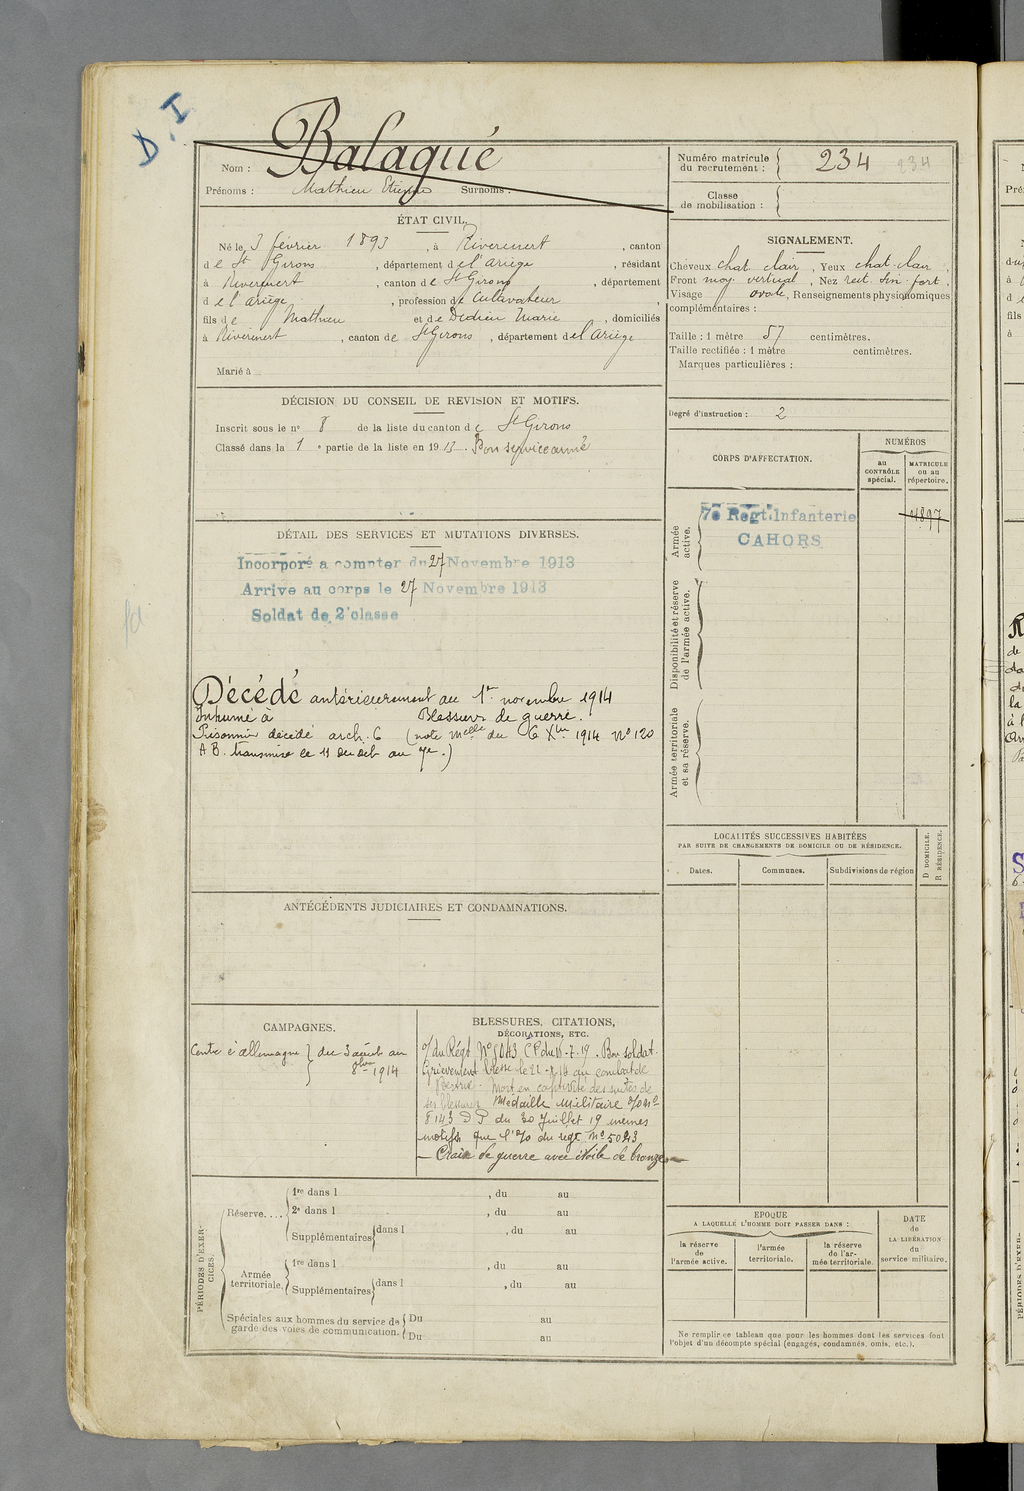 D.I
Nom : Balagué
Prénoms : Mathieu Etienne Surnoms :
Numéro matricule du recrutement : 234 234
Classe de mobilisation :
ÉTAT CIVIL.
Né le 3 février 1893, à Rivèrenert, canton
de St Girons, département de l'ariège, résidant
à Rivèrenert, canton de St Girons, département
de l'ariège, profession de Cultivateur,
fils de Mathieu et de Dedieu Marie, domiciliés
à Rivèrenert, canton de St Girons, département de l'Ariège
Marié à
SIGNALEMENT.
Cheveux chat. clair, Yeux chat. clair,
Front moy. vertical, Nez rect. sin. fort,
Visage ovale, Renseignements physionomiques
complémentaires :
Taille : 1 mètre 57 centimètres.
Taille rectifiée : 1 mètre centimètres.
Marques particulières :
DÉCISION DU CONSEIL DE REVISION ET MOTIFS.
Inscrit sous le nº 8 de la liste du canton de St Girons
Classé dans la 1e partie de la liste en 1913. Bon service armé
Degré d'instruction : 2
CORPS D'AFFECTATION.
NUMÉROS
au CONTRÔLE spécial.
MATRICULE ou au répertoire.
Armée active.
7e Régt. Infanterie
CAHORS
4897
Disponibilité et réserve de l'armée active.
Armée territoriale et sa réserve.
DÉTAIL DES SERVICES ET MUTATIONS DIVERSES.
Incorporé a compter du 27 Novembre 1913
Arrive au corps le 27 Novembre 1913
Soldat de 2e classe
Décédé antérieurement au 1er novembre 1914
Inhumé à Blessures de guerre.
Prisonnier décédé arch. 6 (note Melle du 6 Xbre 1914 Nº 120
A B. transmise le 11 du dit au 7e.)
LOCALITÉS SUCCESSIVES HABITÉES
PAR SUITE DE CHANGEMENTS DE DOMICILE OU DE RÉSIDENCE.
Dates.
Communes.
Subdivisions de région
D DOMICILE.
R RÉSIDENCE.
ANTÉCÉDENTS JUDICIAIRES ET CONDAMNATIONS.
CAMPAGNES.
Contre l'allemagne } du 3 août au
8bre 1914
BLESSURES, CITATIONS,
DÉCORATIONS, ETC.
o/ du Régt Nº 5043 du 7.19. Bon soldat.
Grièvement blessé le 22 au combat de
Mort en captivité des suites de
ses blessures Médaille Militaire
8143 D P du 30 Juillet 19 mêmes
motifs que l'o/o du regt nº 5043
— Croix de guerre avec étoile de bronze —
PÉRIODES D'EXERCICES.
Réserve....
1re dans l , du au
2e dans l , du au
Supplémentaires dans l , du au
Armée territoriale.
1re dans l , du au
Supplémentaires dans l , du au
Spéciales aux hommes du service de garde des voies de communication.
Du au
Du au
EPOQUE
A LAQUELLE L'HOMME DOIT PASSER DANS :
la réserve de l'armée active.
l'armée territoriale.
la réserve de l'armée territoriale.
DATE de LA LIBÉRATION du service militaire.
Ne remplir ce tableau que pour les hommes dont les services font
l'objet d'un décompte spécial (engagés, condamnés, omis, etc.).